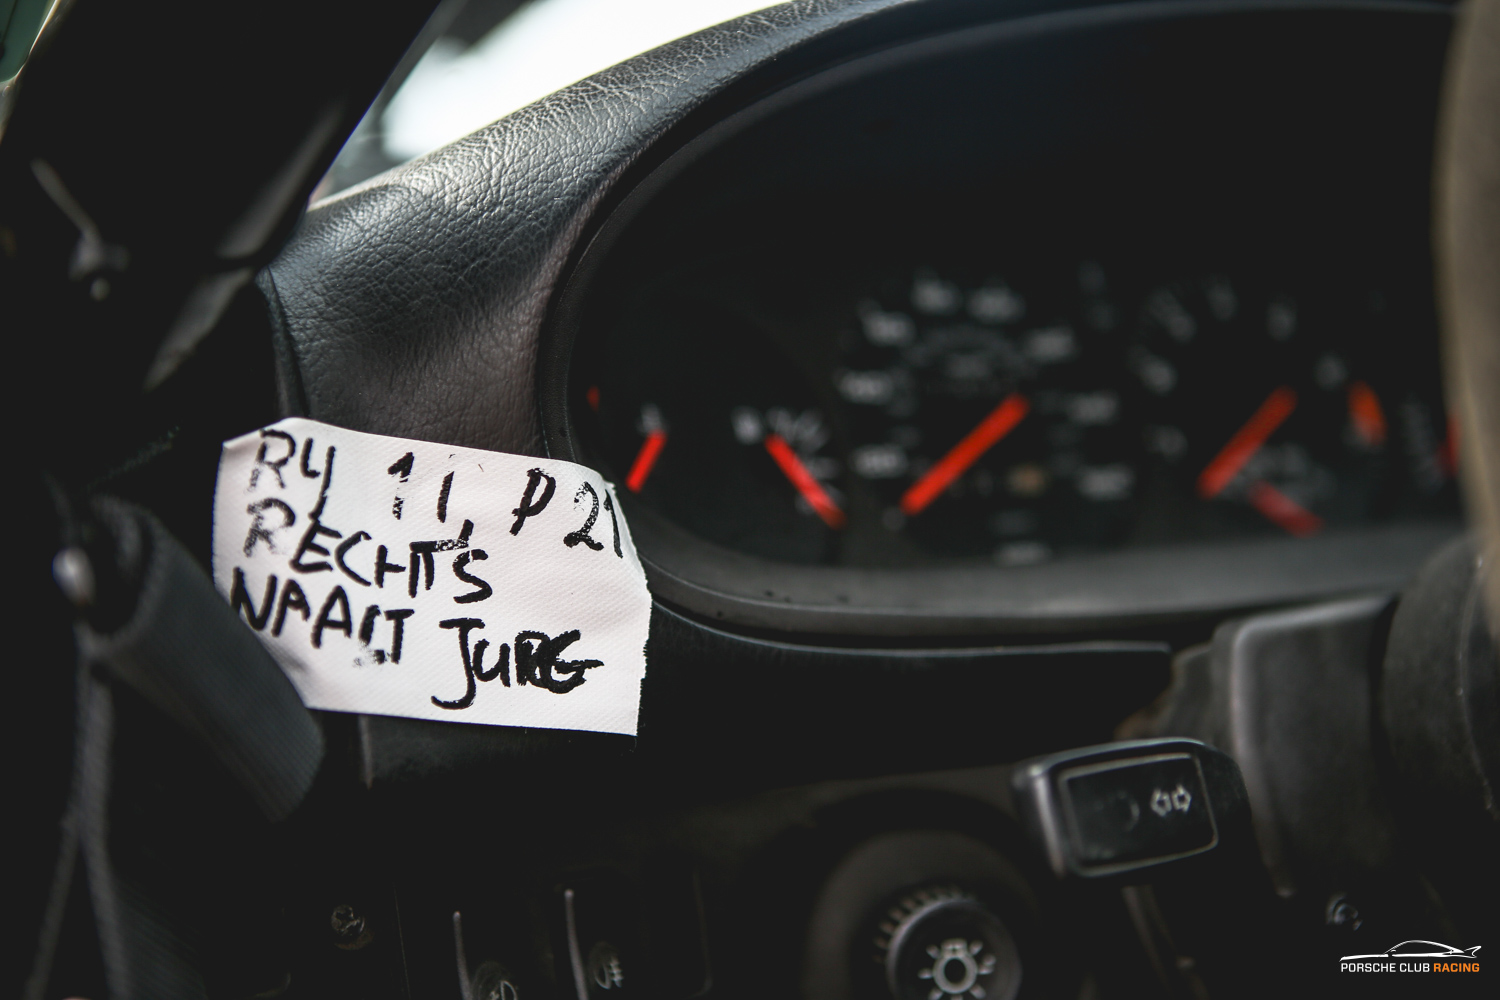 RIJ 11, P 21
RECHTS
NAAST JURG
PORSCHE CLUB RACING